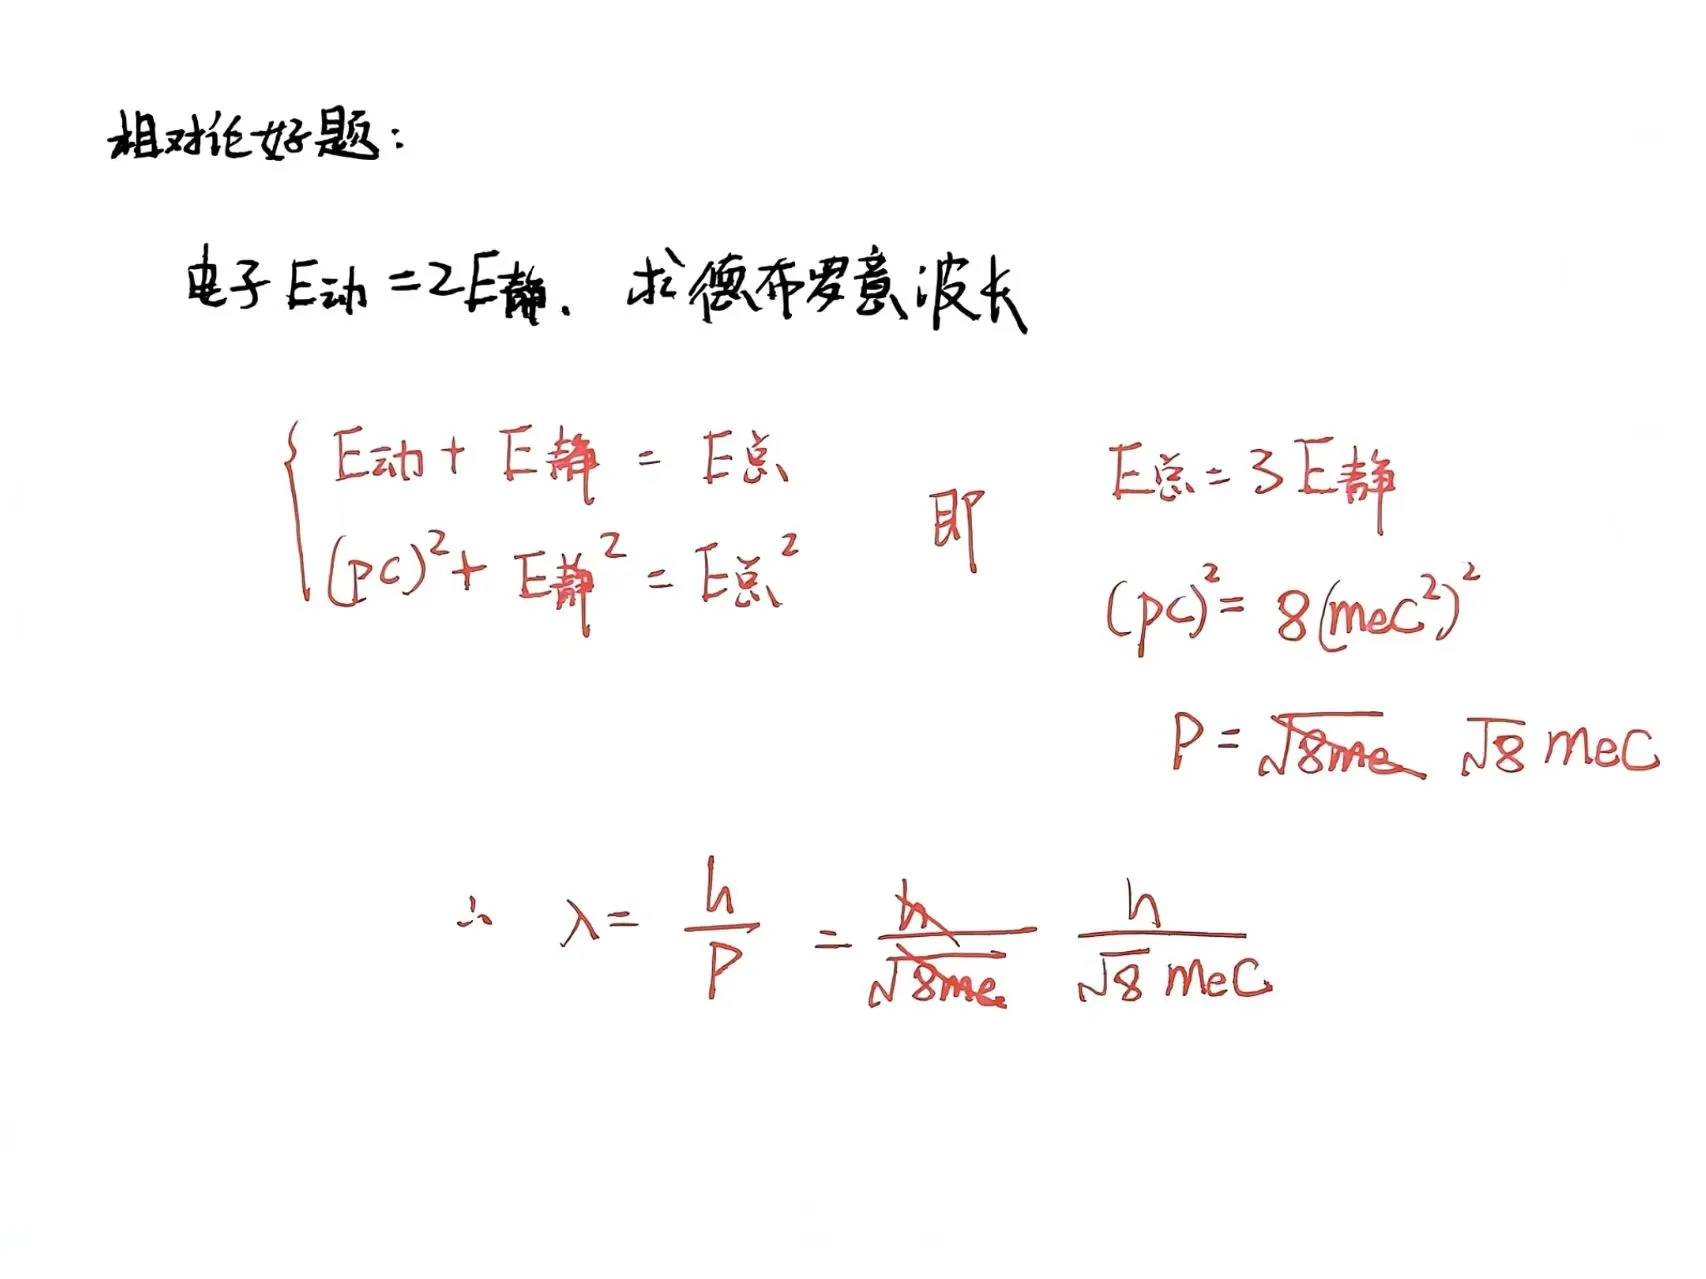 相对论好题：
电子 E动 = 2E静. 求德布罗意波长
E动 + E静 = E总
(pc)² + E静² = E总²
即
E总 = 3E静
(pc)² = 8(meC²)²
P = √8me √8 meC
∴ λ = h/P = h/√8me h/√8 meC